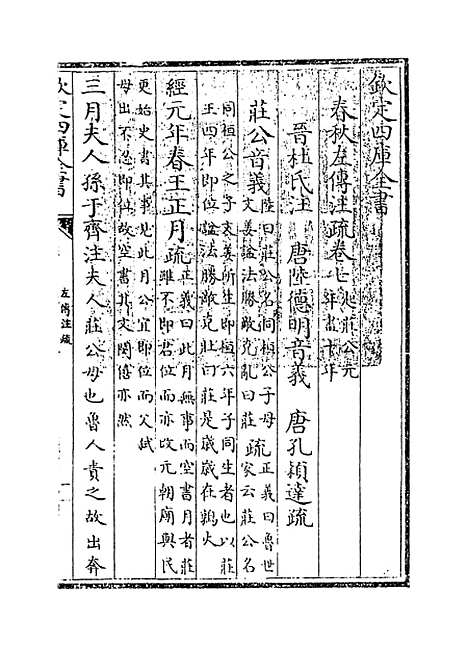 欽定四庫全書
春秋左傳注疏卷七起莊公元年盡十年
晋杜氏注 唐陸德明音義 唐孔穎達疏
莊公音義陸曰莊公名同桓公子母文姜諡法勝敵克亂曰莊疏正義曰魯世家云莊公名
同桓公之子文姜所生即桓六年子同生者也以莊王四年即位諡法勝敵克壯曰莊是歲歲在鶉火
經元年春王正月疏正義曰此月無事而空書月者莊雖不即君位而亦改元朝廟與民
更始史書其事見此月公宜即位而父弑母出不忍即位故空書其文閔僖亦然
三月夫人孫于齊注夫人莊公母也魯人責之故出奔
欽定四庫全書
左傳注疏
一